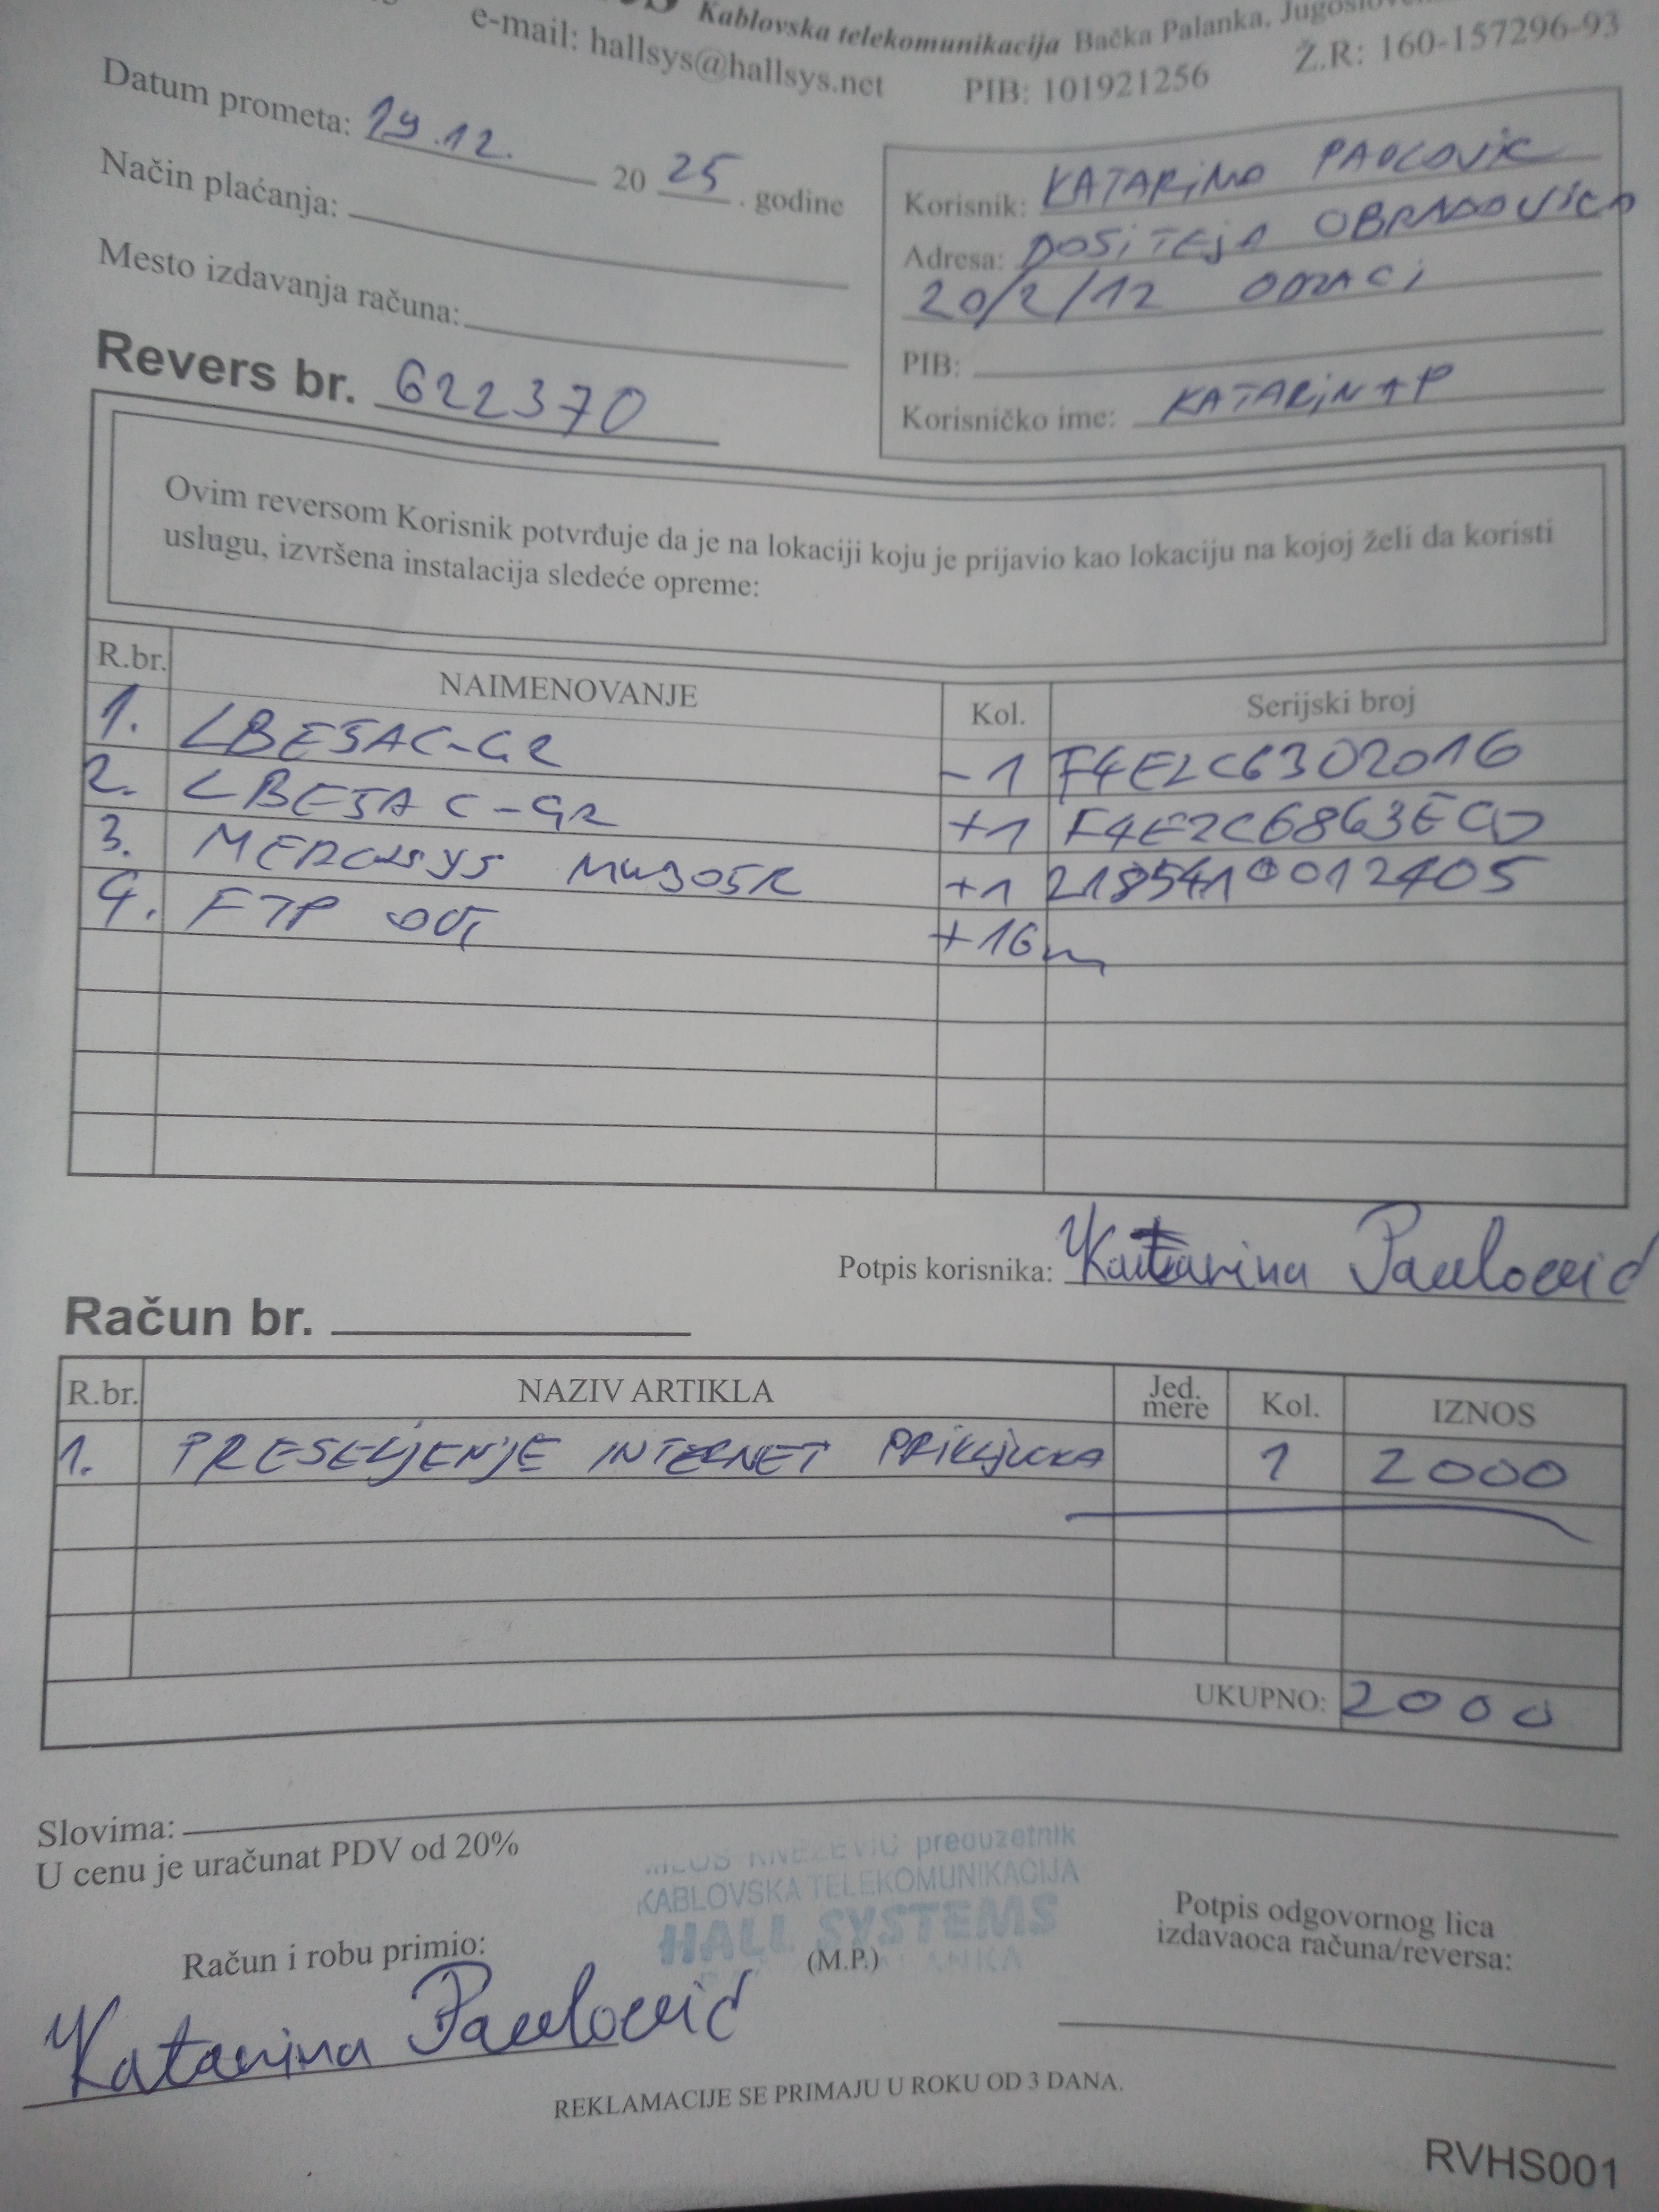 Kablovska telekomunikacija Bačka Palanka,
e-mail: hallsys@hallsys.net PIB: 101921256 Ž.R: 160-157296-93
Datum prometa: 29.12. 20 25 . godine
Način plaćanja:
Mesto izdavanja računa:
Korisnik: KATARINA PAVLOVIC
Adresa: DOSITEJA OBRADOVICA
20/2/12 ODZACI
PIB:
Korisničko ime: KATARINAP
Revers br. 622370
Ovim reversom Korisnik potvrđuje da je na lokaciji koju je prijavio kao lokaciju na kojoj želi da koristi
uslugu, izvršena instalacija sledeće opreme:
R.br. NAIMENOVANJE Kol. Serijski broj
1. LBE5AC-GR -1 F4E2C6302016
2. LBE5AC-GR +1 F4E2C6863ECD
3. MERCUSYS MW305R +1 2185410012405
4. FTP OUT +16m
Potpis korisnika: Katarina Pavlović
Račun br.
R.br. NAZIV ARTIKLA Jed. mere Kol. IZNOS
1. PRESELJENJE INTERNET PRIKLJUCKA 1 2000
UKUPNO: 2000
Slovima:
U cenu je uračunat PDV od 20%
KNEŽEVIĆ preduzetnik
KABLOVSKA TELEKOMUNIKACIJA
HALL SYSTEMS
Račun i robu primio:
(M.P.)
Potpis odgovornog lica
izdavaoca računa/reversa:
Katarina Pavlović
REKLAMACIJE SE PRIMAJU U ROKU OD 3 DANA.
RVHS001